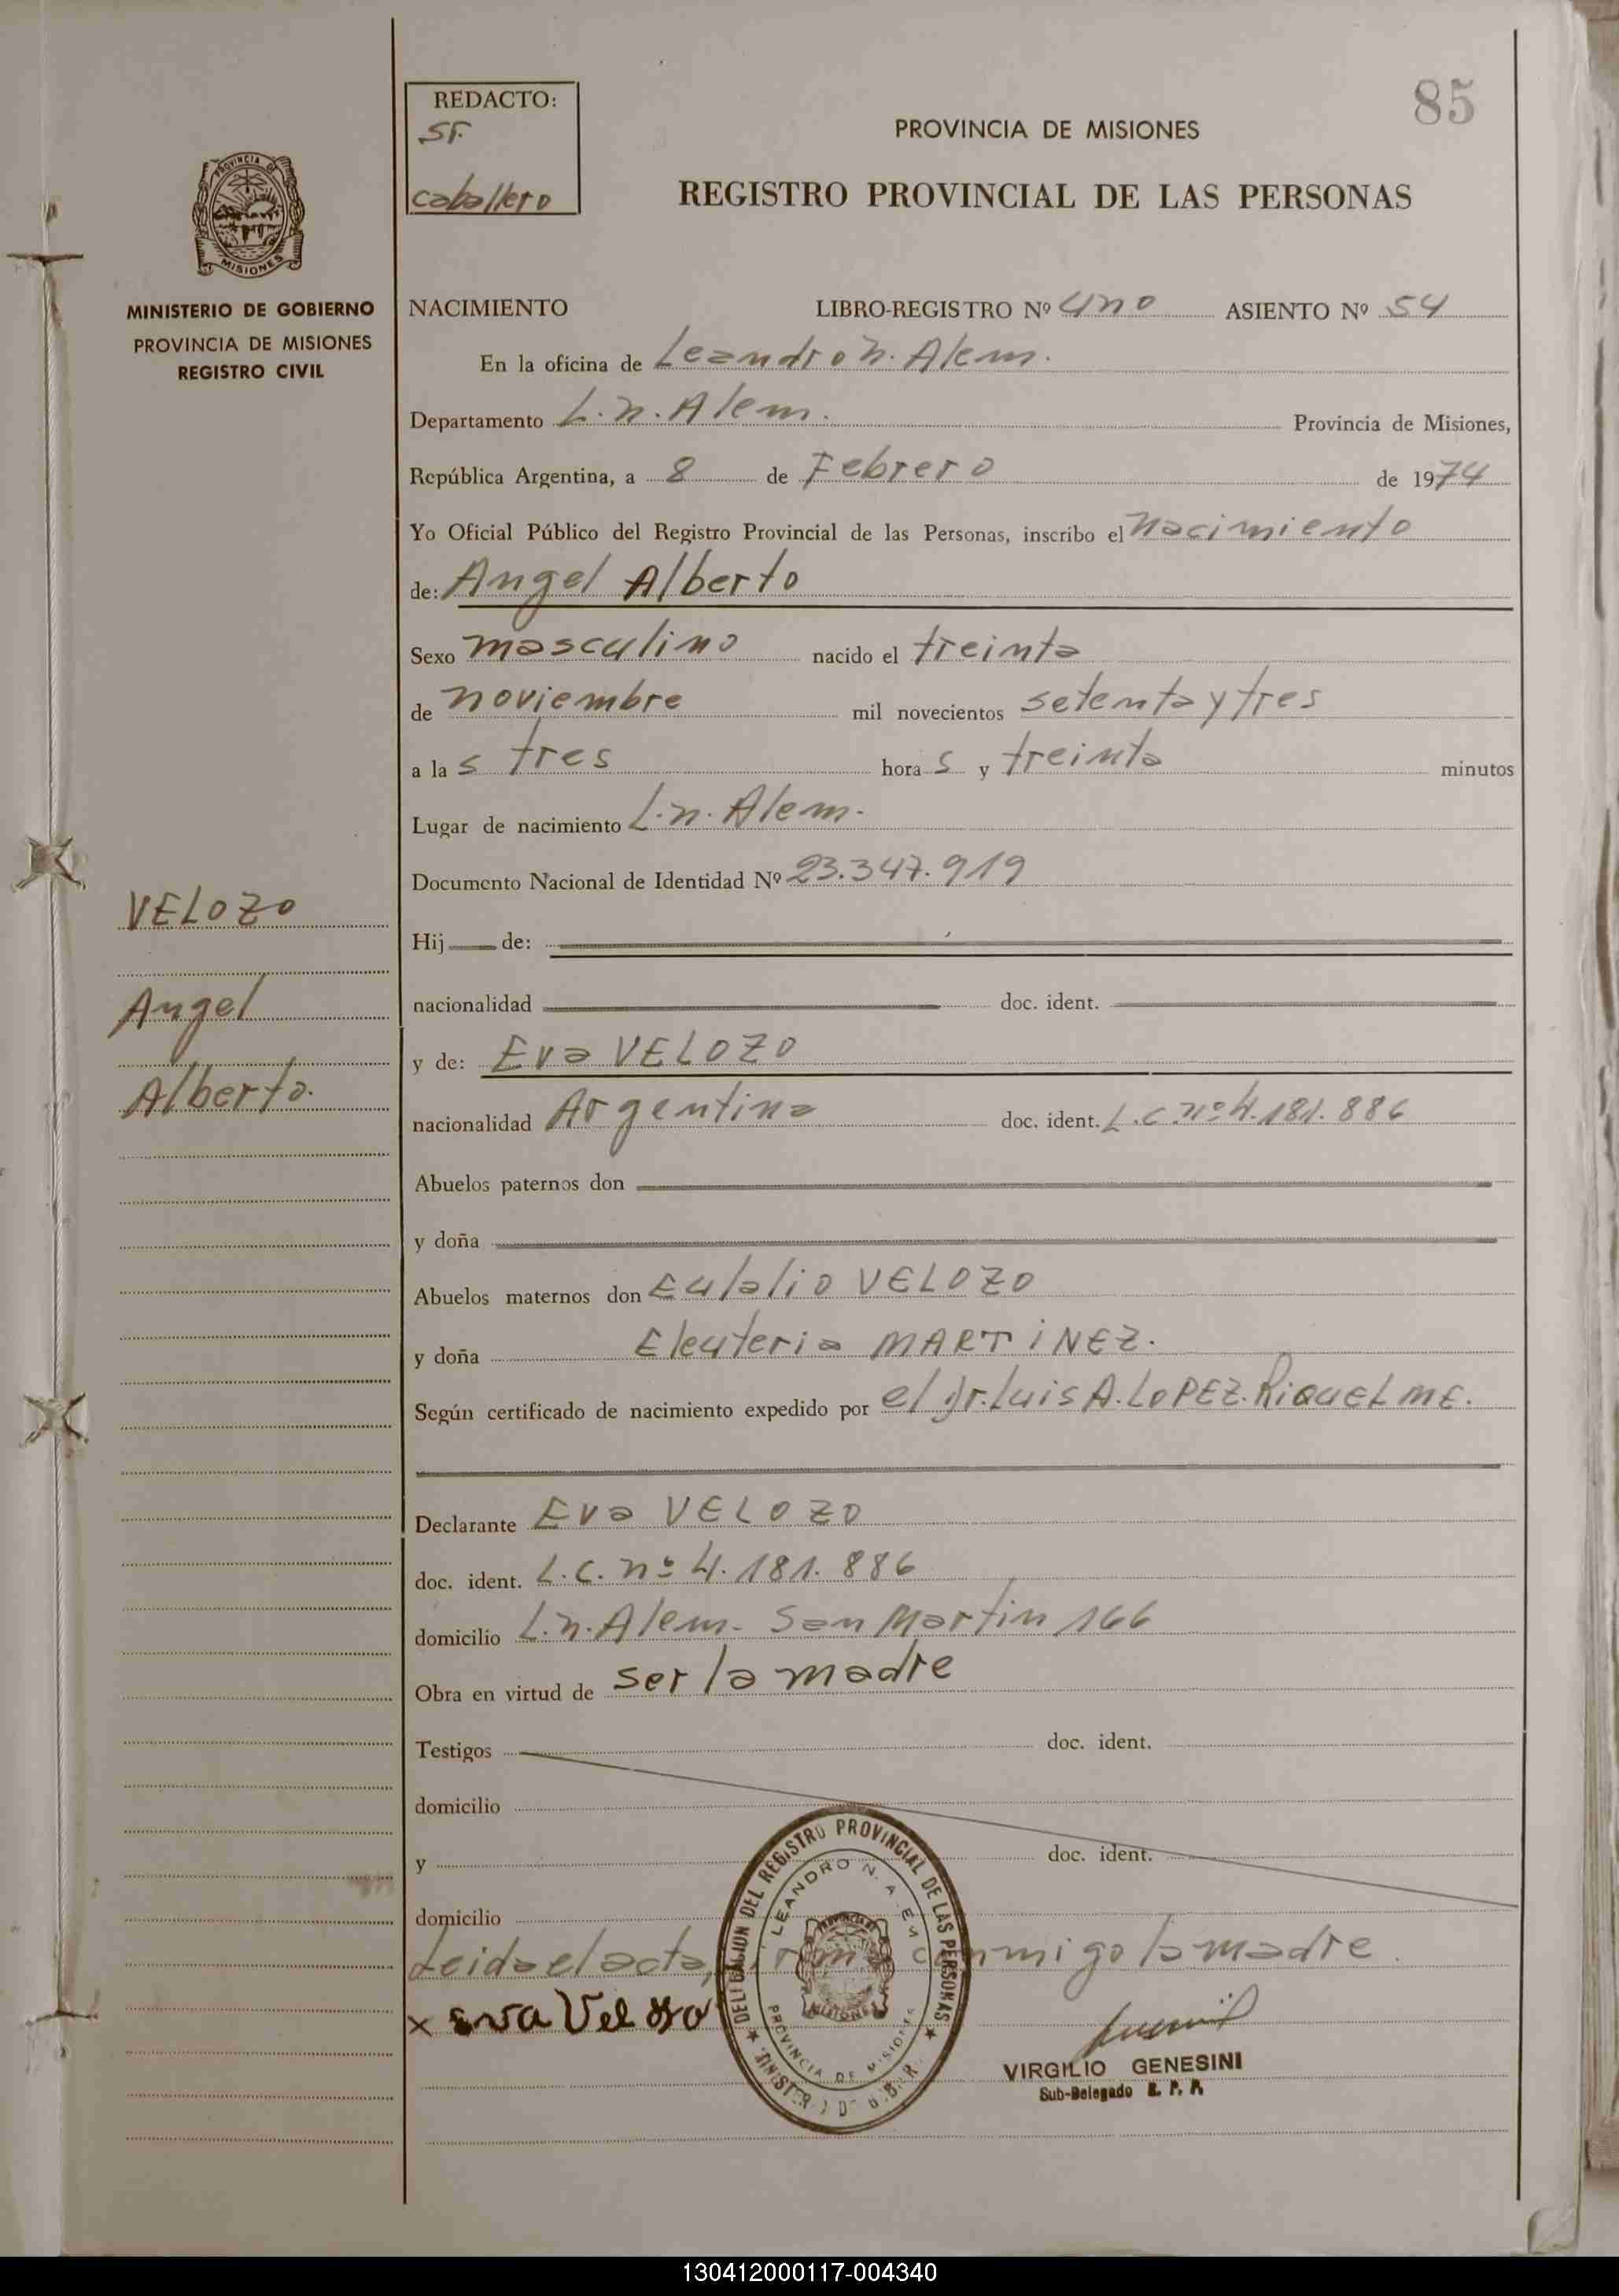 85
REDACTO:
SF.
caballero
PROVINCIA DE MISIONES
REGISTRO PROVINCIAL DE LAS PERSONAS
PROVINCIA DE
MISIONES
MINISTERIO DE GOBIERNO
PROVINCIA DE MISIONES
REGISTRO CIVIL
VELOZO
Angel
Alberto.
NACIMIENTO LIBRO-REGISTRO Nº uno ASIENTO Nº 54
En la oficina de Leandro N. Alem.
Departamento L. N. Alem. Provincia de Misiones,
República Argentina, a 8 de Febrero de 1974
Yo Oficial Público del Registro Provincial de las Personas, inscribo el nacimiento
de: Angel Alberto
Sexo masculino nacido el treinta
de noviembre mil novecientos setenta y tres
a la s tres hora s y treinta minutos
Lugar de nacimiento L. N. Alem.
Documento Nacional de Identidad Nº 23.347.919
Hij de:
nacionalidad doc. ident.
y de: Eva VELOZO
nacionalidad Argentina doc. ident. L.C. nº 4.181.886
Abuelos paternos don
y doña
Abuelos maternos don Eulalio VELOZO
y doña Eleuteria MARTINEZ.
Según certificado de nacimiento expedido por el Dr. Luis A. LOPEZ. RiQUELME.
Declarante Eva VELOZO
doc. ident. L. C. nº 4.181.886
domicilio L. N. Alem. San Martin 166
Obra en virtud de ser la madre
Testigos doc. ident.
domicilio
y doc. ident.
domicilio
Leida el acta, conmigo la madre.
x Eva Velozo
DELEGACION DEL REGISTRO PROVINCIAL DE LAS PERSONAS
LEANDRO N. ALEM
PROVINCIA DE MISIONES
MISIONES
VIRGILIO GENESINI
Sub-Delegado R. P. P.
130412000117-004340